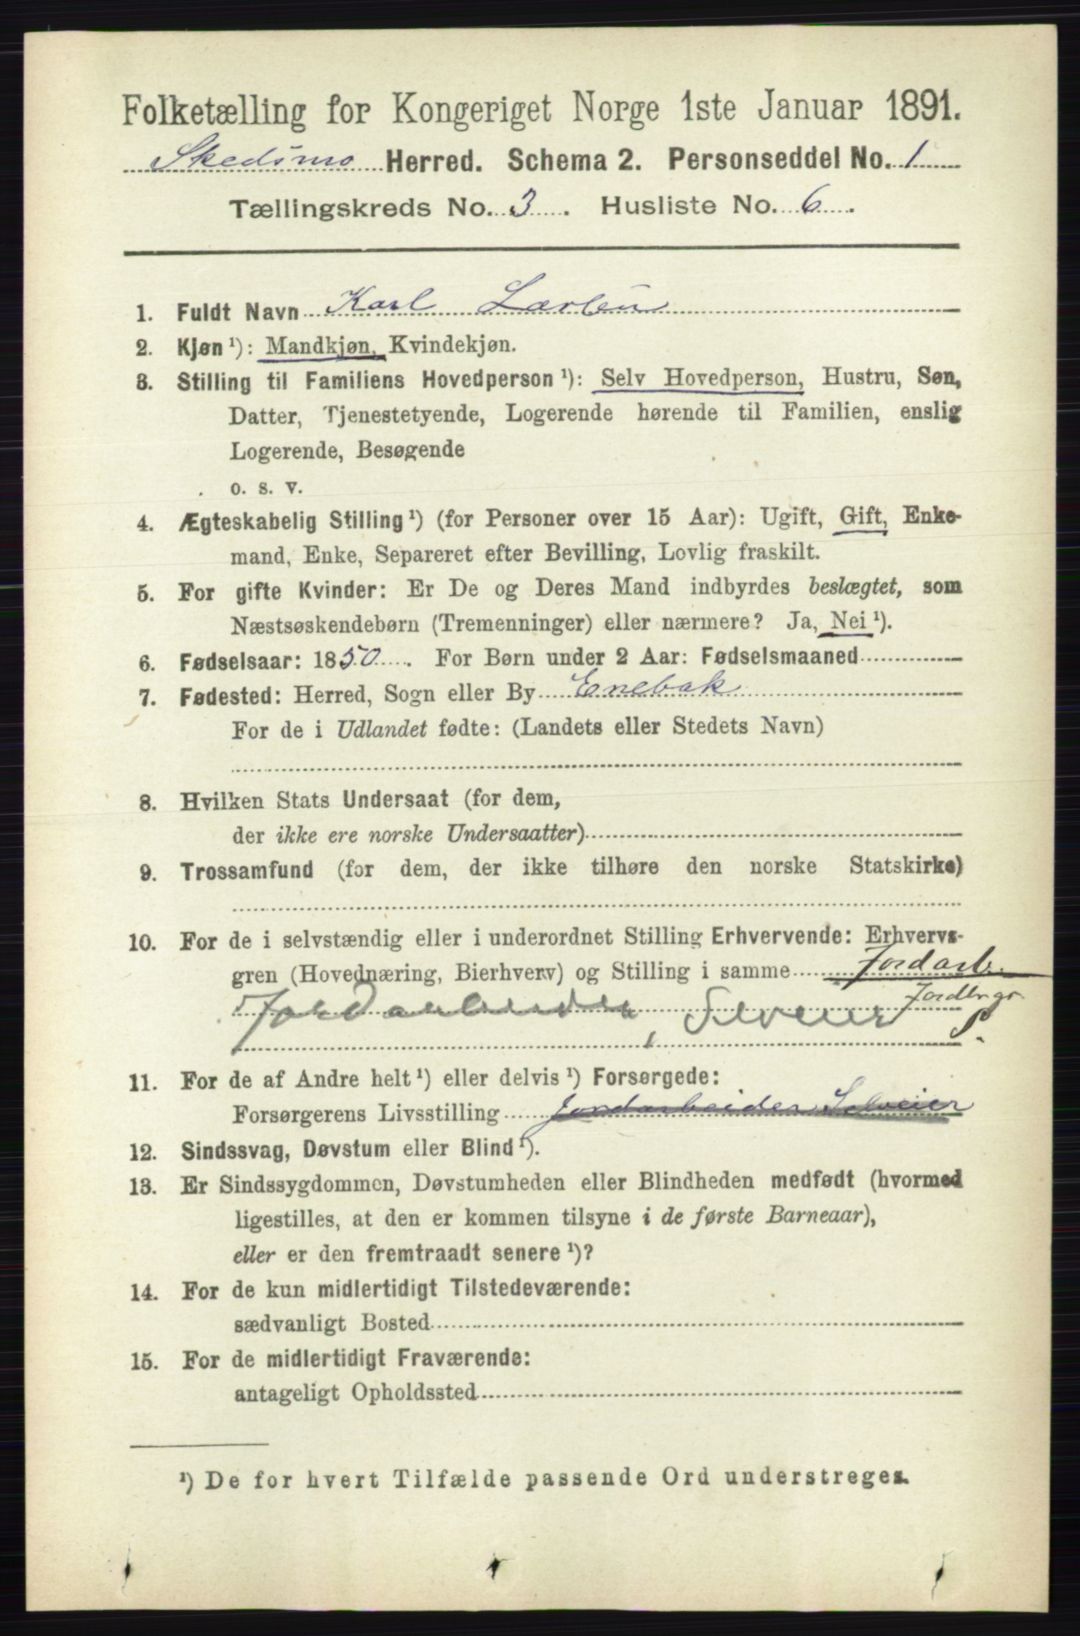 Folketælling for Kongeriget Norge 1ste Januar 1891.
Skedsmo Herred. Schema 2. Personseddel No. 1
Tællingskreds No. 3. Husliste No. 6.
1. Fuldt Navn Karl Larsen
2. Kjøn ¹): Mandkjøn, Kvindekjøn.
3. Stilling til Familiens Hovedperson ¹): Selv Hovedperson, Hustru, Søn,
Datter, Tjenestetyende, Logerende hørende til Familien, enslig
Logerende, Besøgende
o. s. v.
4. Ægteskabelig Stilling ¹) (for Personer over 15 Aar): Ugift, Gift, Enke-
mand, Enke, Separeret efter Bevilling, Lovlig fraskilt.
5. For gifte Kvinder: Er De og Deres Mand indbyrdes beslægtet, som
Næstsøskendebørn (Tremenninger) eller nærmere? Ja, Nei ¹).
6. Fødselsaar: 1850. For Børn under 2 Aar: Fødselsmaaned
7. Fødested: Herred, Sogn eller By Enebak
For de i Udlandet fødte: (Landets eller Stedets Navn)
8. Hvilken Stats Undersaat (for dem,
der ikke ere norske Undersaatter)
9. Trossamfund (for dem, der ikke tilhøre den norske Statskirke)
10. For de i selvstændig eller i underordnet Stilling Erhvervende: Erhvervs-
gren (Hovednæring, Bierhverv) og Stilling i samme Jordarb.
Jordarbeider, Selveier Jordbrgr
S.
11. For de af Andre helt ¹) eller delvis ¹) Forsørgede:
Forsørgerens Livsstilling Jordarbeider Selveier
12. Sindssvag, Døvstum eller Blind ¹).
13. Er Sindssygdommen, Døvstumheden eller Blindheden medfødt (hvormed
ligestilles, at den er kommen tilsyne i de første Barneaar),
eller er den fremtraadt senere ¹)?
14. For de kun midlertidigt Tilstedeværende:
sædvanligt Bosted
15. For de midlertidigt Fraværende:
antageligt Opholdssted
¹) De for hvert Tilfælde passende Ord understreges.